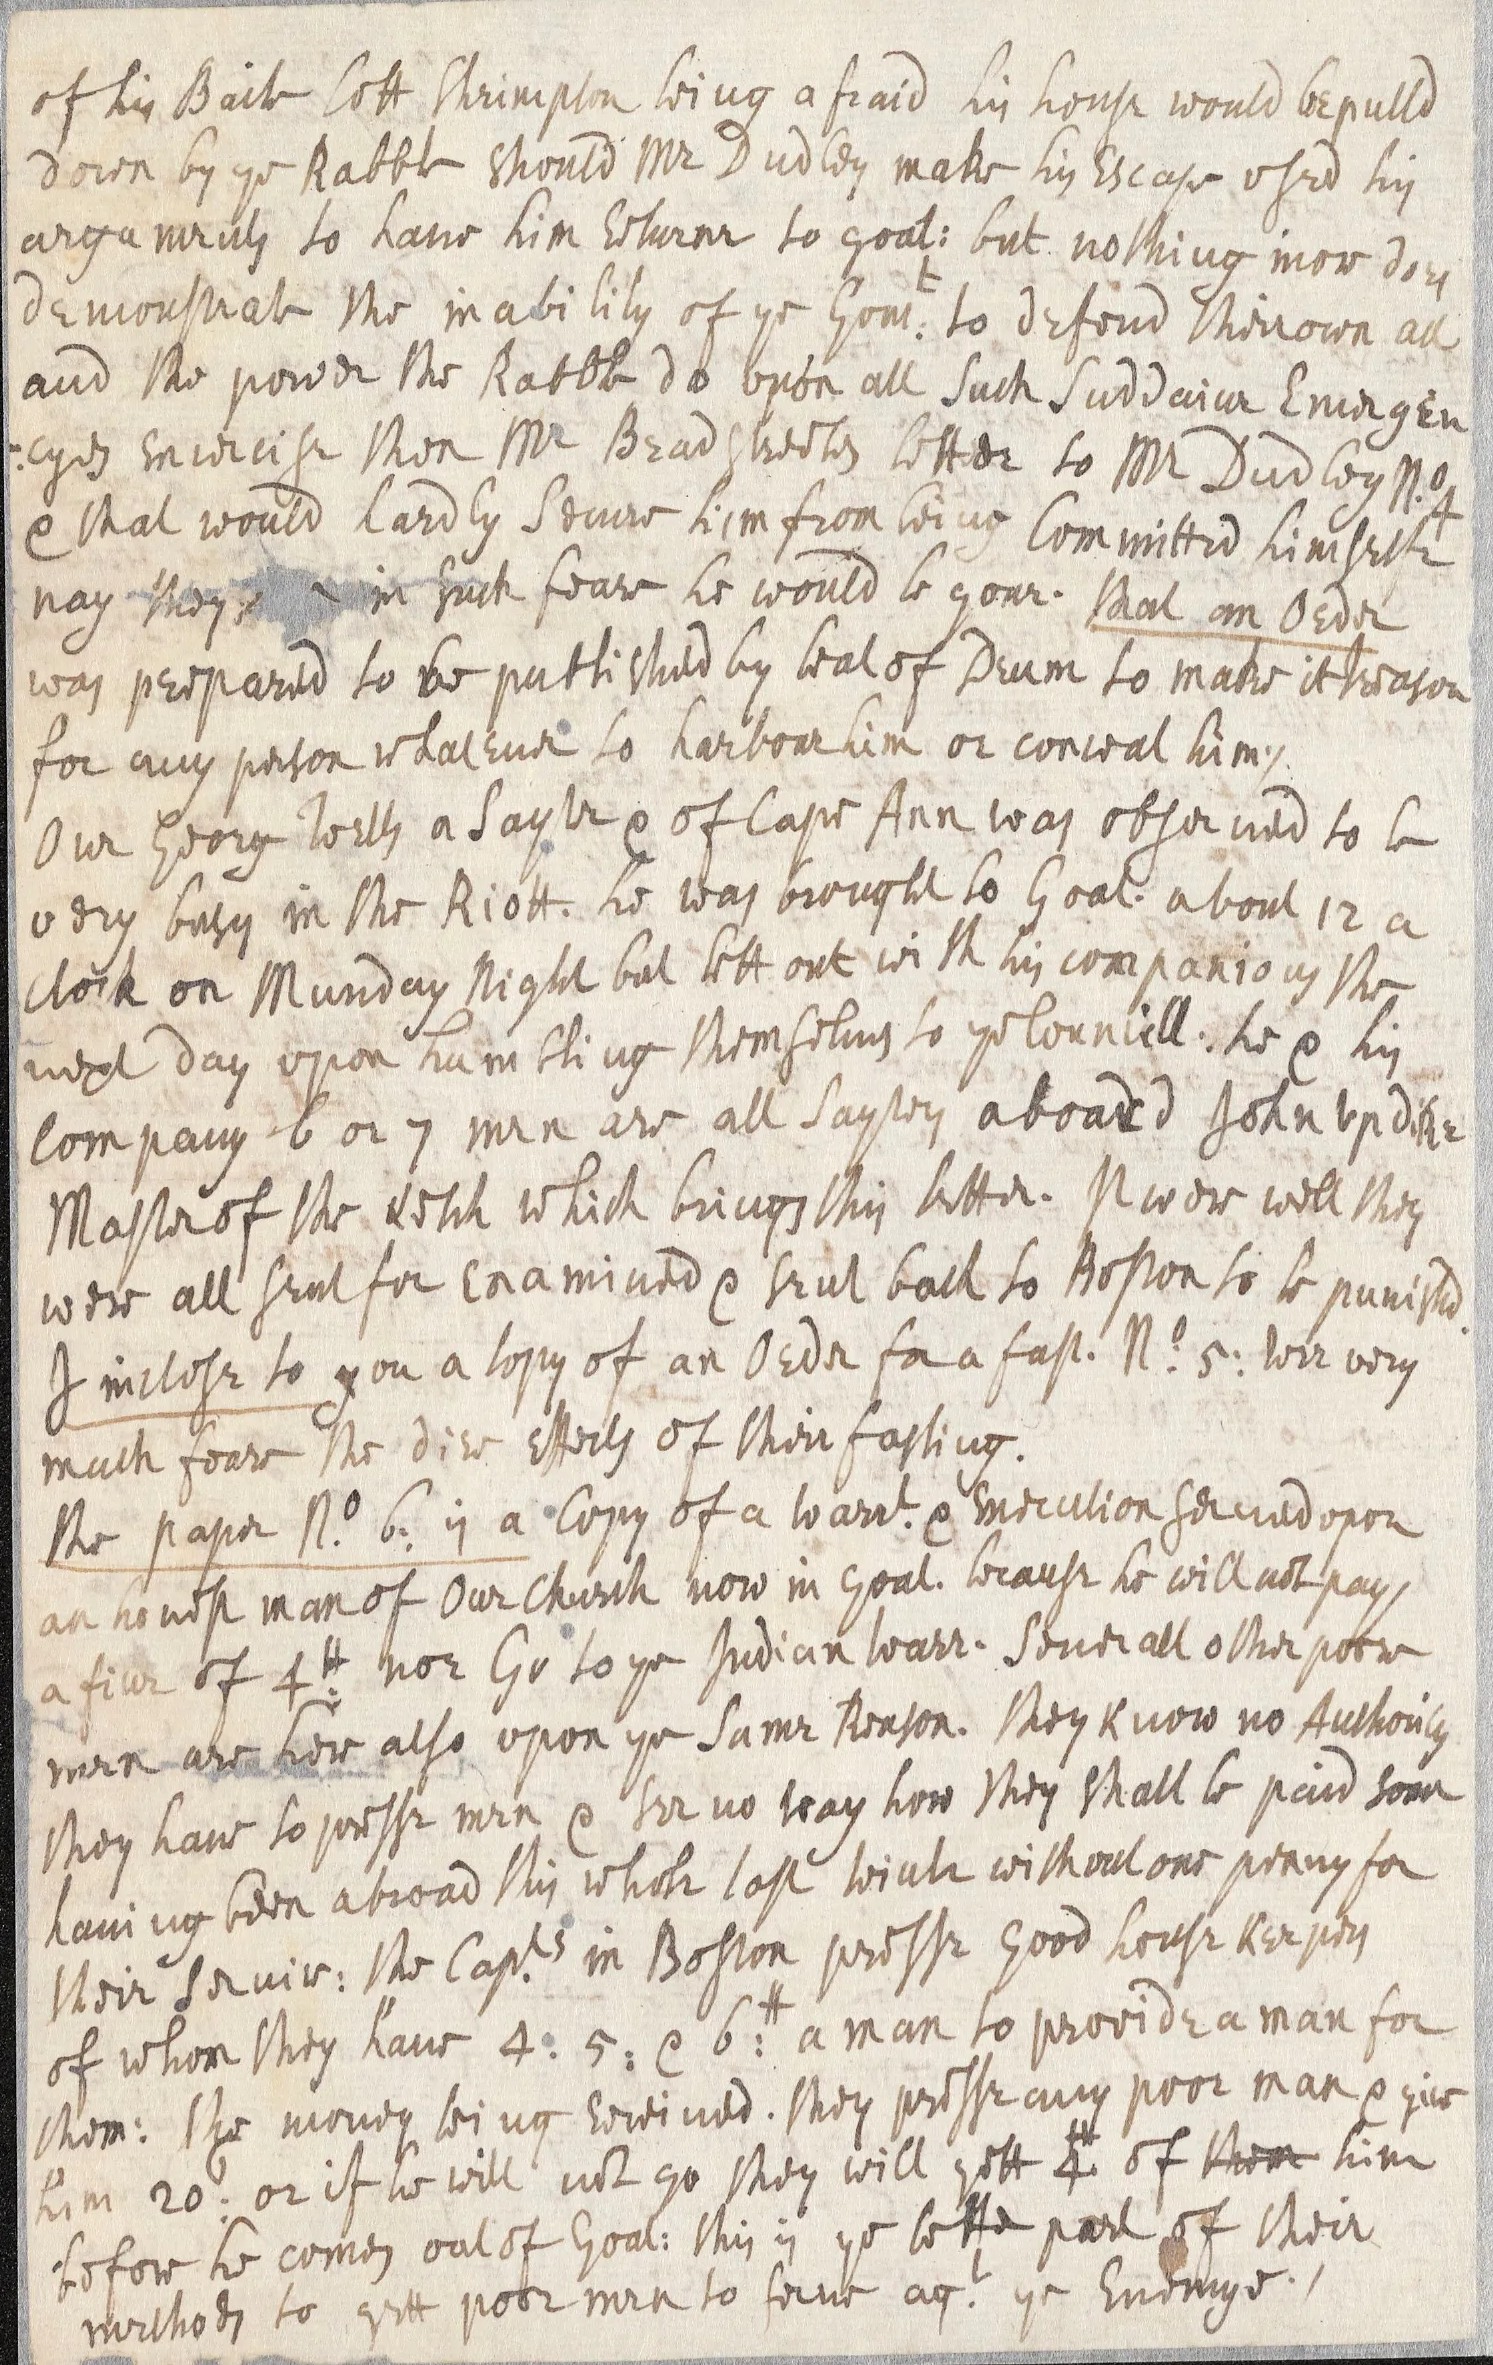 of his Baile Coll Shrimpton being afraid his house would be pulld
down by ye Rabble Should Mr Dudley make his Escape used his
argumruts to haue him Returne to goal: but nothing more does
demonstrate the inability of ye Gomt: to defend their own act
and the power the Rabble do upon all Such Suddaine Emergen
:cyes Exercise then Mr Bradstreetes letter to Mr Dudley No. 4
& that would hardly Secure him from being Committed himselfe
nay they in Such feare he would be gone. that an Order
was prepared to be published by beat of Drum to make it treason
for any person whatever to harbour him or conceal him:/
One Georg Wells a Sayler & of Cape Ann was observed to be
very busy in the Riott. he was brought to Goal. about 12 a
clock on Munday Night but lett out with his companions the
next day upon humbling themselves to ye Councill. he & his
Company 6 or 7 men are all Saylers aboard John Updike
Master of the Ketch which brings this letter. It were well they
were all sent for Examined & sent back to Boston to be punisht.
I inclose to you a Copy of an Order for a fast. No. 5: Wee very
much feare the dire Effects of their fasting.
The paper No. 6: is a Copy of a Warrt. & Execution served upon
an honest man of Our Church now in Goal. because he will not pay
a fine of 4ll: nor Go to ye Indian Warr. Severall other poore
men are here also upon ye Same Reason. They know no Authority
they haue to presse men & see no way how they shall be paid some
having been abroad this whole last Winter without one penny for
their Service: the Capts. in Boston presse good house Keepers
of whom they have 4: 5: & 6ll: a man to provide a man for
them: the money being Received. they presse any poor man & give
him 20s: or if he will not go they will gett 4ll. of them him
before he comes out of Goal: this is ye better part of their
methods to gett poor men to serve agt. ye Enemye./